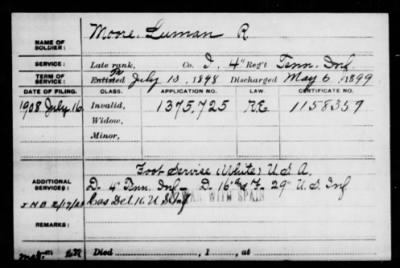 NAME OF SOLDIER: Moore, Luman R
SERVICE: Late rank, Co. I, 4" Reg't Tenn. Inf.
TERM OF SERVICE: Enlisted July 13, 1898 Discharged May 6, 1899
DATE OF FILING. CLASS. APPLICATION NO. LAW. CERTIFICATE NO.
1908 July 16 Invalid, 1375,725 R.R. 1158357
Widow,
Minor,
Foot Service (White) U.S.A.
ADDITIONAL SERVICES: D. 4" Tenn. Inf - D. 16" & F. 29" U.S. Inf
Cas Del U.S. Inf
WAR WITH SPAIN
REMARKS:
Died , 1 , at